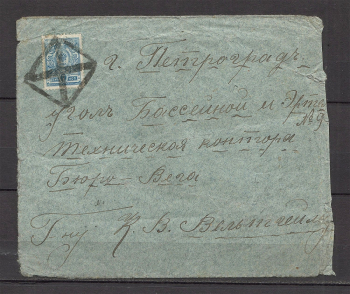 г. Петроградъ
уголъ Бассейной и Эрт.
№ 9
Техническая контора
Бюро Вега
Г-ну К. В.